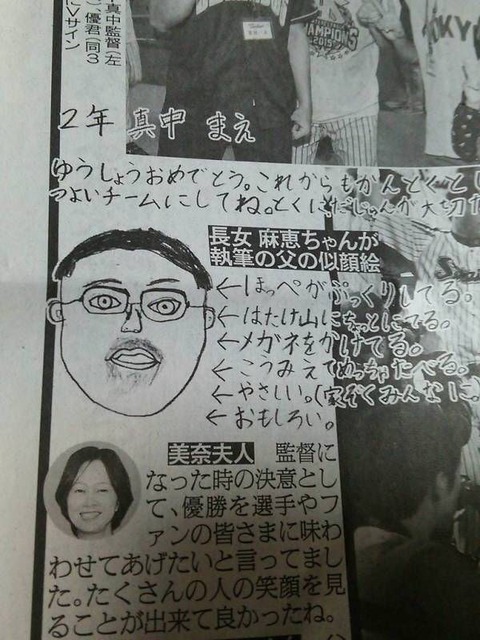 真中監督(左
)、優君(同3
Vサイン
CHAMPIONS
2015
２年 真中 まえ
ゆうしょうおめでとう。これからもかんとくとし
つよいチームにしてね。とくに、だじゅんが大切だ
長女 麻恵ちゃんが
執筆の父の似顔絵
←ほっぺがぷっくりしてる。
←はたけ山にちょっとにてる。
←メガネをかけてる。
←こうみえてめっちゃたべる。
←やさしい。(家ぞくみんなに)
←おもしろい。
美奈夫人 監督に
なった時の決意とし
て、優勝を選手やフ
ァンの皆さまに味わ
わせてあげたいと言ってまし
た。たくさんの人の笑顔を見
ることが出来て良かったね。